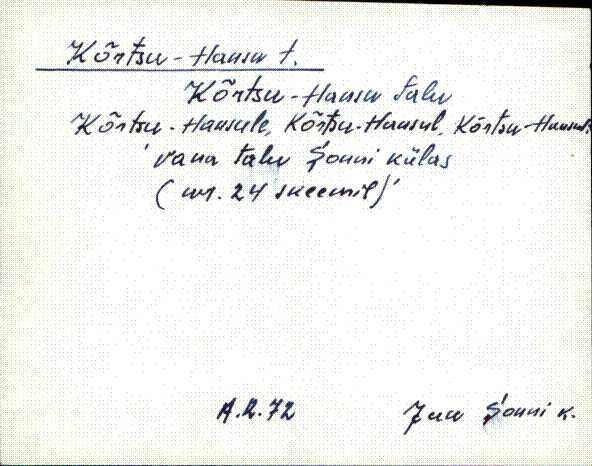 Kõrtsu-Hansu t.
Kõrtsu-Hansu talu
Kõrtsu-Hansule, Kõrtsu-Hansul, Kõrtsu-Hansult
'vana talu Sonni külas
(nr. 24 skeemil)'
A.R.72 Juu Sonni k.